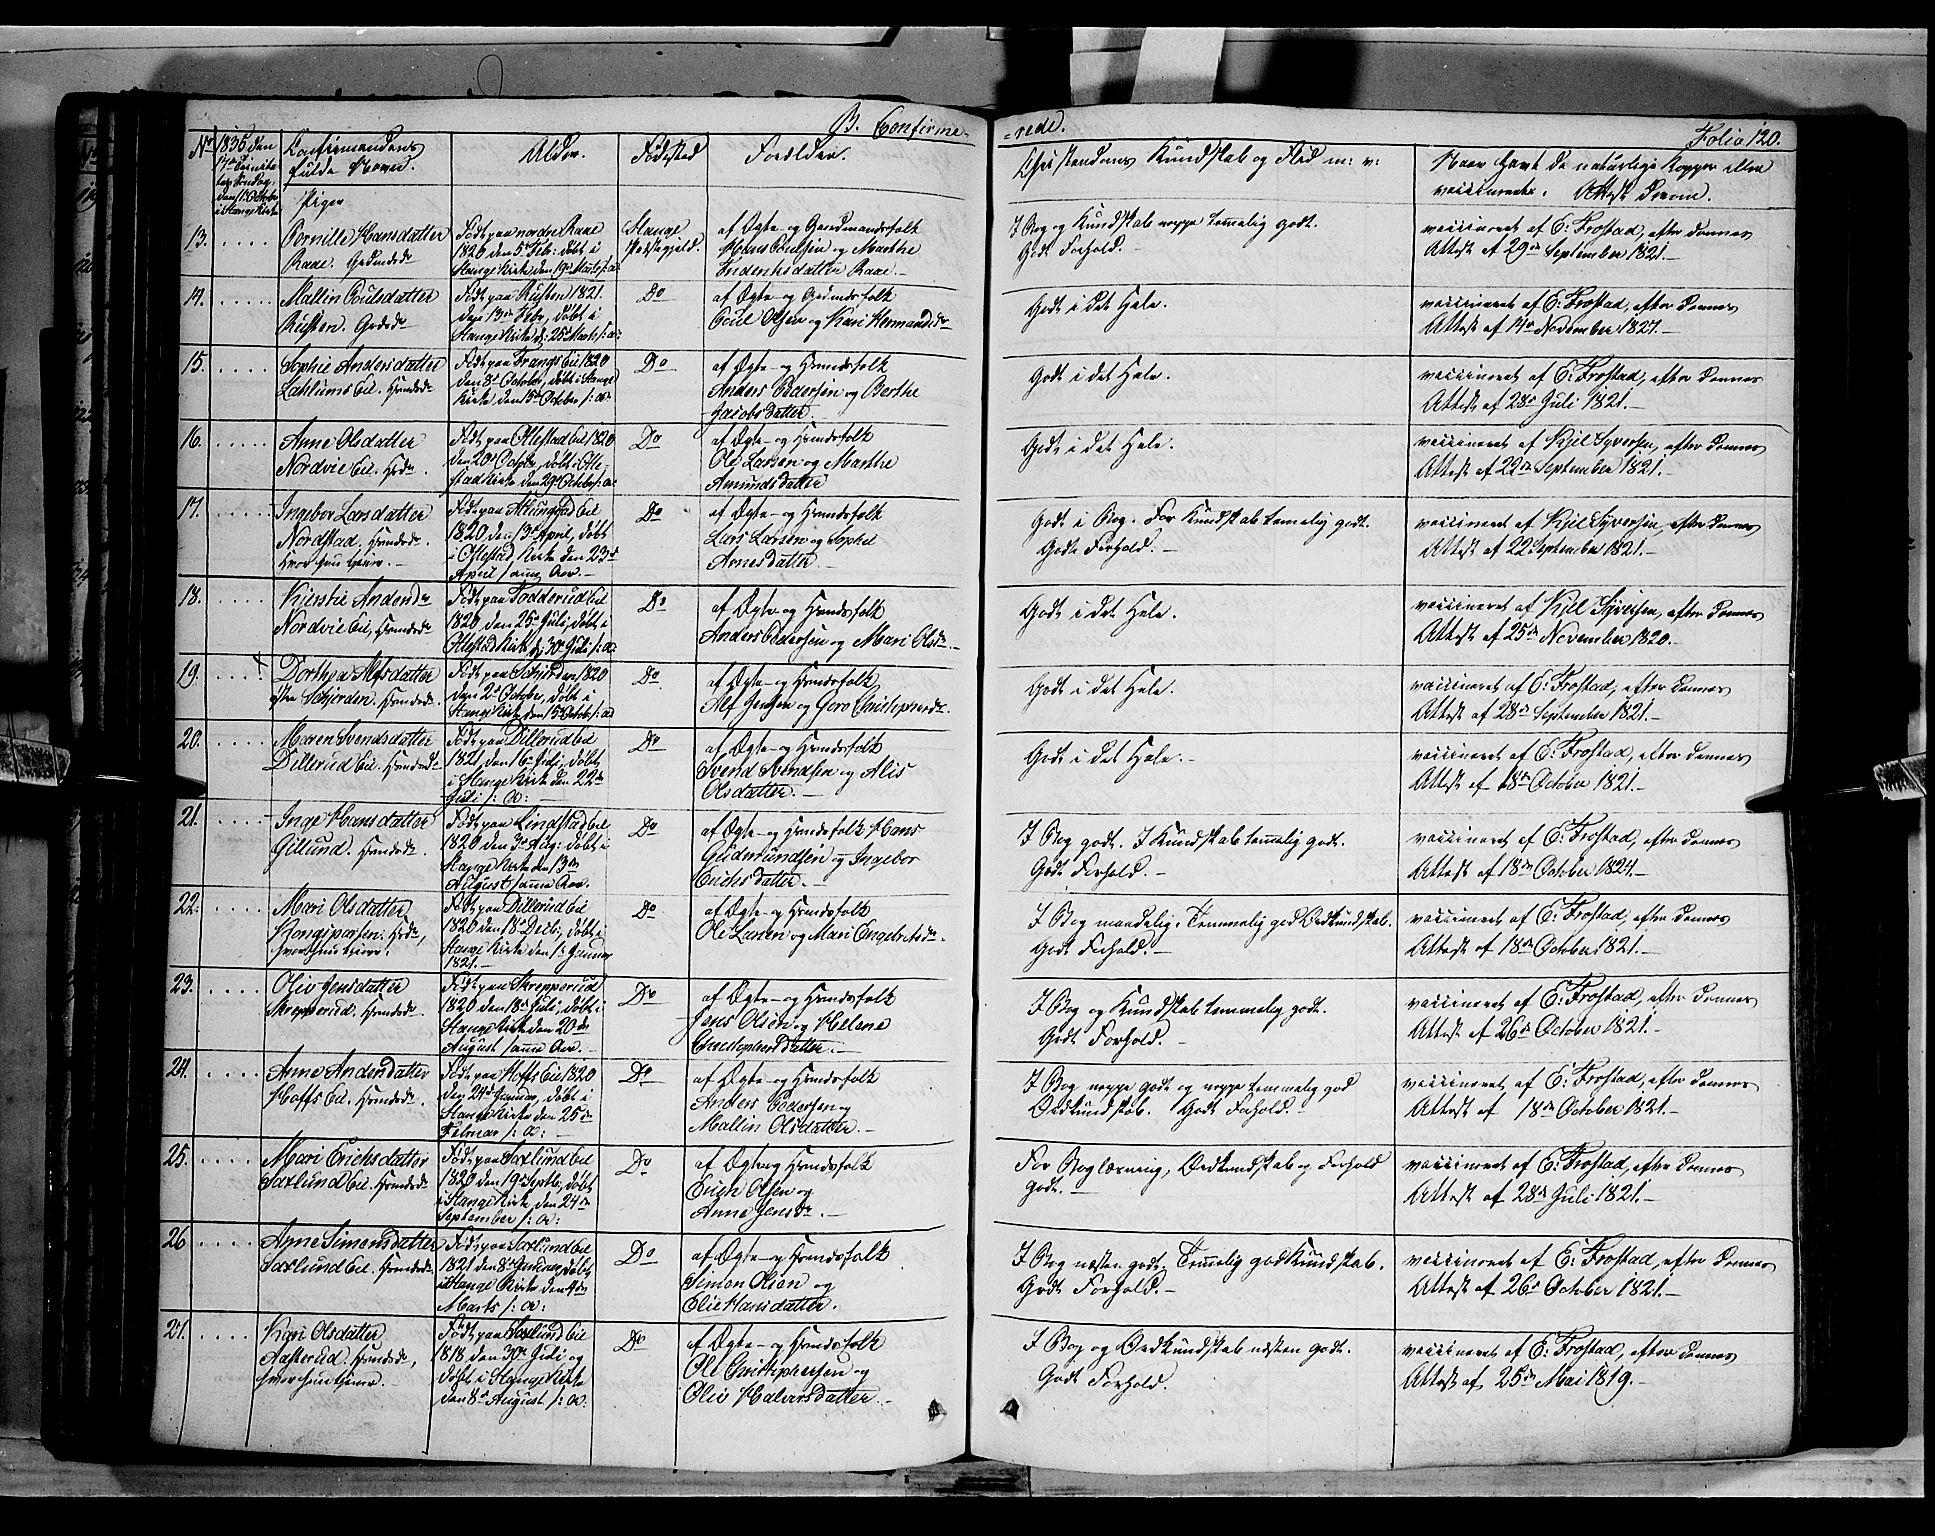 B. Confirme-
-rede.
Folio 120.
No 1835 den
17de Trinita-
tis Søndag,
den 11 October
i Stange Kirke
Confirmandens
fulde Navn.
Piger
Alder.
Fødested
Forældre.
Christendoms Kundskab og Flid m: v:
Naar havt de naturlige Kopper eller
vaccineret. Attest derom.
13. Pernille Hansdatter
Raae. Gdmdsdr
Født paa nordre Raae
1820 den 5te Feb: døbt i
Stange Kirke den 19de Marts s: A:
Stange
Præstegjeld.
af Ægte- og Gaardmandsfolk
Hans Poulsen og Marthe
Raae.-
I Bog og Kundskab noppe temmelig godt.
Godt Forhold.-
vaccineret af E: Frostad, efter dennes
Attest af 29de September 1821.-
14. Mallin Poulsdatter
Rusten. Gdmdsdr
Født paa Rusten 1821.
den 13de Febr, døbt i
Stange Kirke d: 25de Marts s: A:
Do
af Ægte- og Gdmdsfolk
Poul Olsen og Kari Hermandsdr
Godt i det Hele.
vaccineret af E: Frostad, efter dennes
Attest af 14de November 1827.-
15. Sophie Andersdatter
Laklums Eie. Hmdsdr
Født paa Frangs Eie 1820
den 8de October, døbt i Stange
Kirke den 15de October s: A:
Do
af Ægte- og Hmndsfolk
Anders Pedersen og Berthe
Jacobsdatter.-
Godt i det Hele.
vaccineret af E: Frostad, efter dennes
Attest af 28de Juli 1821.-
16. Anne Olsdatter
Nordvie Eie. Hmdr.
Født paa Ottestad Eie 1820
den 20de October, døbt i Otte-
stad Kirke den 29de Octobr s: A:
Do
af Ægte- og Hmndsfolk
Ole Larsen og Marthe
Amundsdatter
Godt i det Hele.
vaccineret af Kjel Syversen, efter dennes
Attest af 22de September 1821.-
17. Ingebor Larsdatter
Nordstad. Hmdsdr.
hvor hun tjener.-
Født paa Atlungstad Eie
1820 den 13de April, døbt
i Ottestad Kirke den 23de
April samme Aar.-
Do
af Ægte- og Hmndsfolk
Lars Larsen og Sophie
Arnesdatter.-
Godt i Bog. For Kundskab temmelig godt.
Godt Forhold.-
vaccineret af Kjel Syversen, efter dennes
Attest af 22 September 1821.-
18. Kierstie Andersdr
Nordvie Eie, Hmndsdr
Født paa Fodderud Eie
1820 den 25de Juli, døbt i
Ottestad Kirke d: 30de Juli s: A:
Do
af Ægte og Hmndsfolk
Anders Pedersen og Mari Olsdr.-
Godt i det Hele.
vaccineret af Kjel Syversen, efter dennes
Attest af 25de November 1820.-
19. Dorthea Alfsdatter
østre Schjerden. Hmndsdr.
Født paa Schjerden 1820
den 2de October, døbt i
Stange Kirke den 15de October s: A:
Do
af Ægte- og Hmndsfolk
Alf Jensen og Goro Christophersdr.
Godt i det Hele.
vaccineret af E: Frostad, efter dennes
Attest af 28de September 1821.-
20. Maren Svendsdatter
Dillerud Eie. Hmndsdr
Født paa Dillerud Eie
1821, den 16de Juli, døbt
i Stange Kirke den 22de
Juli s: A:
Do
af Ægte- og Hmndsfolk
Svend Svendsen og Alis
Olsdatter.-
Godt i det Hele.-
vaccineret af E: Frostad, efter dennes
Attest af 18de October 1821.-
21. Inge Hansdatter
Gillund. Hmndsdr.
Født paa Lindstad Eie
1820 den 3de Aug: døbt i
Stange Kirke den 13de
August samme Aar.
Do
af Ægte- og Hmndsfolk Hans
Gudmundsen og Ingebor
Erichsdatter.-
I Bog godt. I Kundskab temmelig godt.
Godt Forhold.-
vaccineret af E: Frostad, efter dennes
Attest af 18de October 1824.-
22. Mari Olsdatter
Kongsparten. Hmdr,
hvor hun tjener.
Født paa Dillerud Eie
1820 den 18de Decb:, døbt i
Stange Kirke den 1ste Januar
1821.-
Do
af Ægte- og Hmndsfolk
Ole Larsen og Mari Engebretsdr.
I Bog maadelig. Temmelig god Ordkundskab.
Godt Forhold.-
vaccineret af E: Frostad, efter dennes
Attest af 18de October 1821.-
23. Oliv Jensdatter
Skrepperud. Hmndsdr
Født paa Skrepperud
1820 den 18de Juli, døbt i
Stange Kirke den 20de
August samme Aar.-
Do
af Ægte- og Hmndsfolk
Jens Olsen og Helene
Christophersdatter.-
I Bog og Kundskab temmelig godt.
Godt Forhold.-
vaccineret af E: Frostad, efter dennes
Attest af 26de October 1821.-
24. Anne Andersdatter
Hoffs Eie. Hmndsdr.
Født paa Hoffs Eie 1820
den 24de Januar, døbt i
Stange Kirke den 25de
Februar s: A:-
Do
af Ægte- og Hmndsfolk
Anders Pedersen og
Mallin Olsdatter.-
I Bog noppe godt og noppe temmelig god
Ordkundskab. Godt Forhold.-
vaccineret af E: Frostad, efter dennes
Attest af 18de October 1821.-
25. Mari Erichsdatter
Saxlund Eie. Hmndsdr
Født paa Saxlund Eie
1820 den 19de Septb:, døbt
i Stange Kirke, den 24de
September s: A:
Do
af Ægte og Hmndsfolk
Erich Olsen og
Anne Jensdr.-
For Boglæsning, Ordkundskab og Forhold
godt.-
vaccineret af E: Frostad, efter dennes
Attest af 28de Juli 1821.-
26 Agne Simensdatter
Saxlund Eie. Hmndsdr.
Født paa Saxlund Eie
1821 den 8de Januar, døbt
i Stange Kirke den 4de
Marts s: A:
Do
af Ægte- og Hmndsfolk
Simon Olsen og
Elie Hansdatter.
I Bog næsten godt. Temmelig god Kundskab.
Godt Forhold.-
vaccineret af E: Frostad, efter dennes
Attest af 26de October 1821.-
27. Kari Olsdatter
Aasterud. Hmndsdr,
hvor hun tjener.
Født paa Saxlund Eie
1818 den 30de Juli og
døbt i Stange Kirke
den 8de August s: A:
Do
af Ægte- og Hmndsfolk
Ole Christophersen og
Oliv Halvorsdatter.-
I Bog og Ordkundskab næsten godt.
Godt Forhold.
vaccineret af E: Frostad, efter dennes
Attest af 25de Mai 1819.-